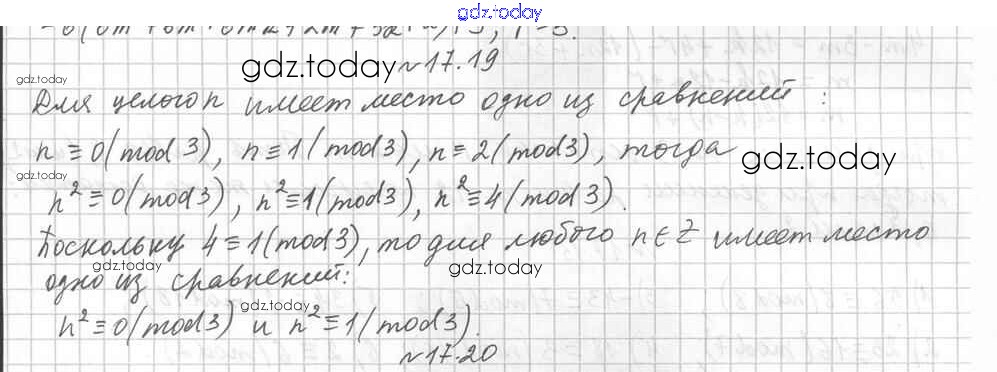 gdz.today
gdz.today №17.19
gdz.today
Для целого n имеет место одно из сравнений:
n ≡ 0(mod 3), n ≡ 1(mod 3), n ≡ 2(mod 3), тогда
gdz.today
gdz.today
n² ≡ 0(mod 3), n² ≡ 1(mod 3), n² ≡ 4(mod 3).
Поскольку 4 ≡ 1(mod 3), то для любого n ∈ Z имеет место
gdz.today gdz.today
одно из сравнений:
gdz.today
n² ≡ 0(mod 3) и n² ≡ 1(mod 3).
№17.20